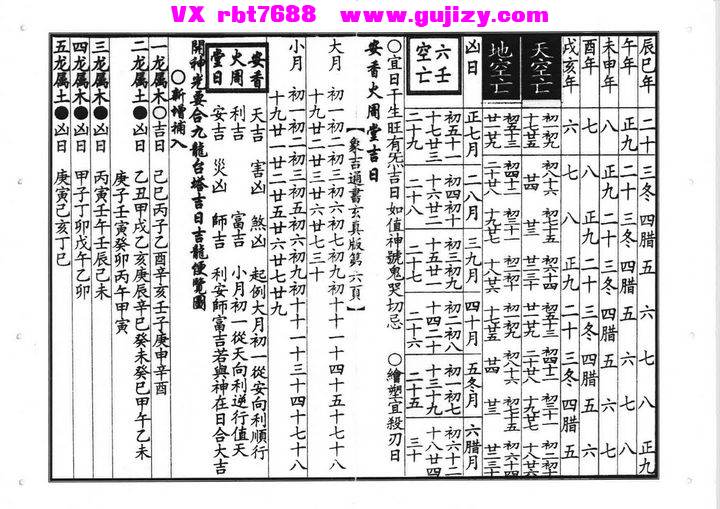 VX rbt7688 www.gujizy.com
辰巳年 二十 三冬 四腊 五 六 七 八 正九
午年 正九 二十 三冬 四腊 五 六 七 八
未申年 八 正九 二十 三冬 四腊 五 六 七
酉年 七 八 正九 二十 三冬 四腊 五 六
戌亥年 六 七 八 正九 二十 三冬 四腊 五
天空亡
地空亡
凶日 正七月 二八月 三九月 四十月 五冬月 六腊月
六壬空亡
初五十一 初四初十 初三初九 初二初八 初一初七 初六十二
十七廿三 十六廿二 十五廿一 十四二十 十三十九 十八廿四
二十九 二十八 二十七 二十六 二十五 三十
〇宜日干生旺有炁吉日如值神號鬼哭切忌 〇繪塑宜殺刃日
安香火周堂吉日
【象吉通書玄真版第六頁】
大月 初一初二初三初六初七初九初十十一十四十五十七十八
十九廿二廿三廿六廿七三十
小月 初一初二初三初五初六初九初十十一十三十四十七十八
十九廿一廿二廿五廿六廿七廿九
安香火周堂日
天吉 害凶 煞凶 起例大月初一從安向利順行
利吉 富吉 小月初一從天向利逆行值天
安吉 災凶 師吉 利安師富吉若與神在日合大吉
開神光要合九龍台塔吉日吉龍便覽圖
〇新增補入
一龙属木〇吉日 己巳丙子乙酉辛亥壬子庚申辛酉
二龙属土●凶日 乙丑甲戌乙亥庚辰辛巳癸未癸巳甲午乙未
庚子壬寅癸卯丙午甲寅
三龙属木●凶日 丙寅壬午壬辰己未
四龙属木●凶日 甲子丁卯戊午乙卯
五龙属土●凶日 庚寅己亥丁巳